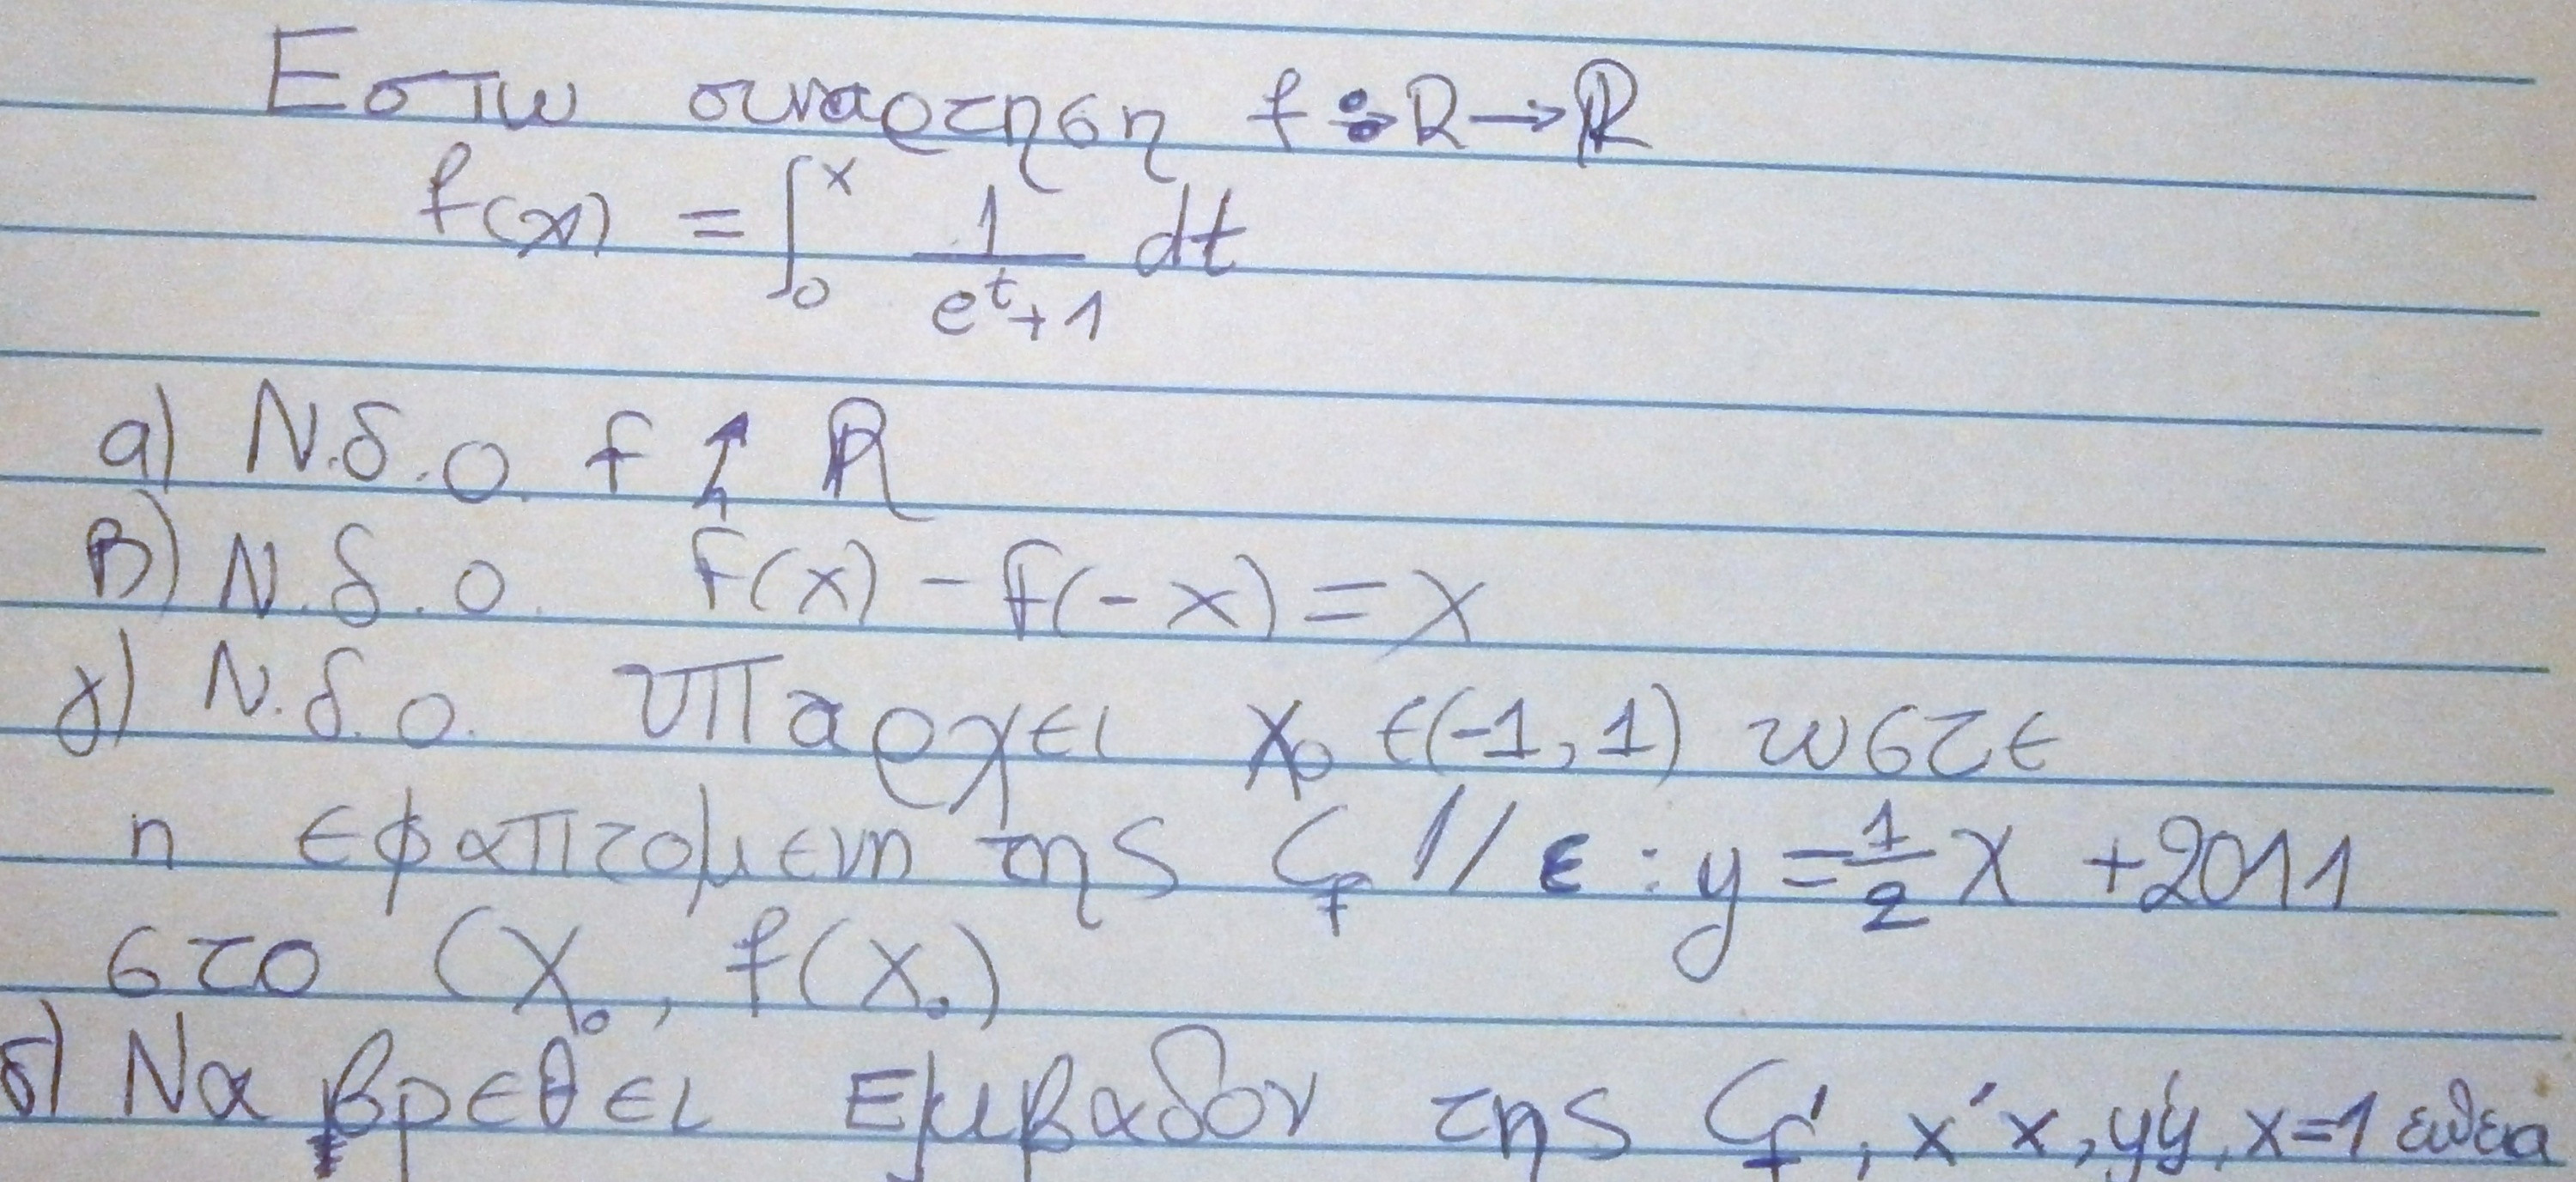 Εστω συναρτηση f : R → ℝ
f(x) = ∫₀ˣ 1/(eᵗ+1) dt
α) Ν.δ.ο. f ↑ ℝ
Β) Ν.δ.ο. f(x) - f(-x) = x
γ) Ν.δ.ο. υπαρχει x₀ ∈(-1,1) ωστε
η εφαπτομενη της C_f // ε : y = 1/2 x + 2011
στο (x₀, f(x₀)
δ) Να βρεθει Εμβαδον της C_f', x'x, y'y, x=1 ευθεια